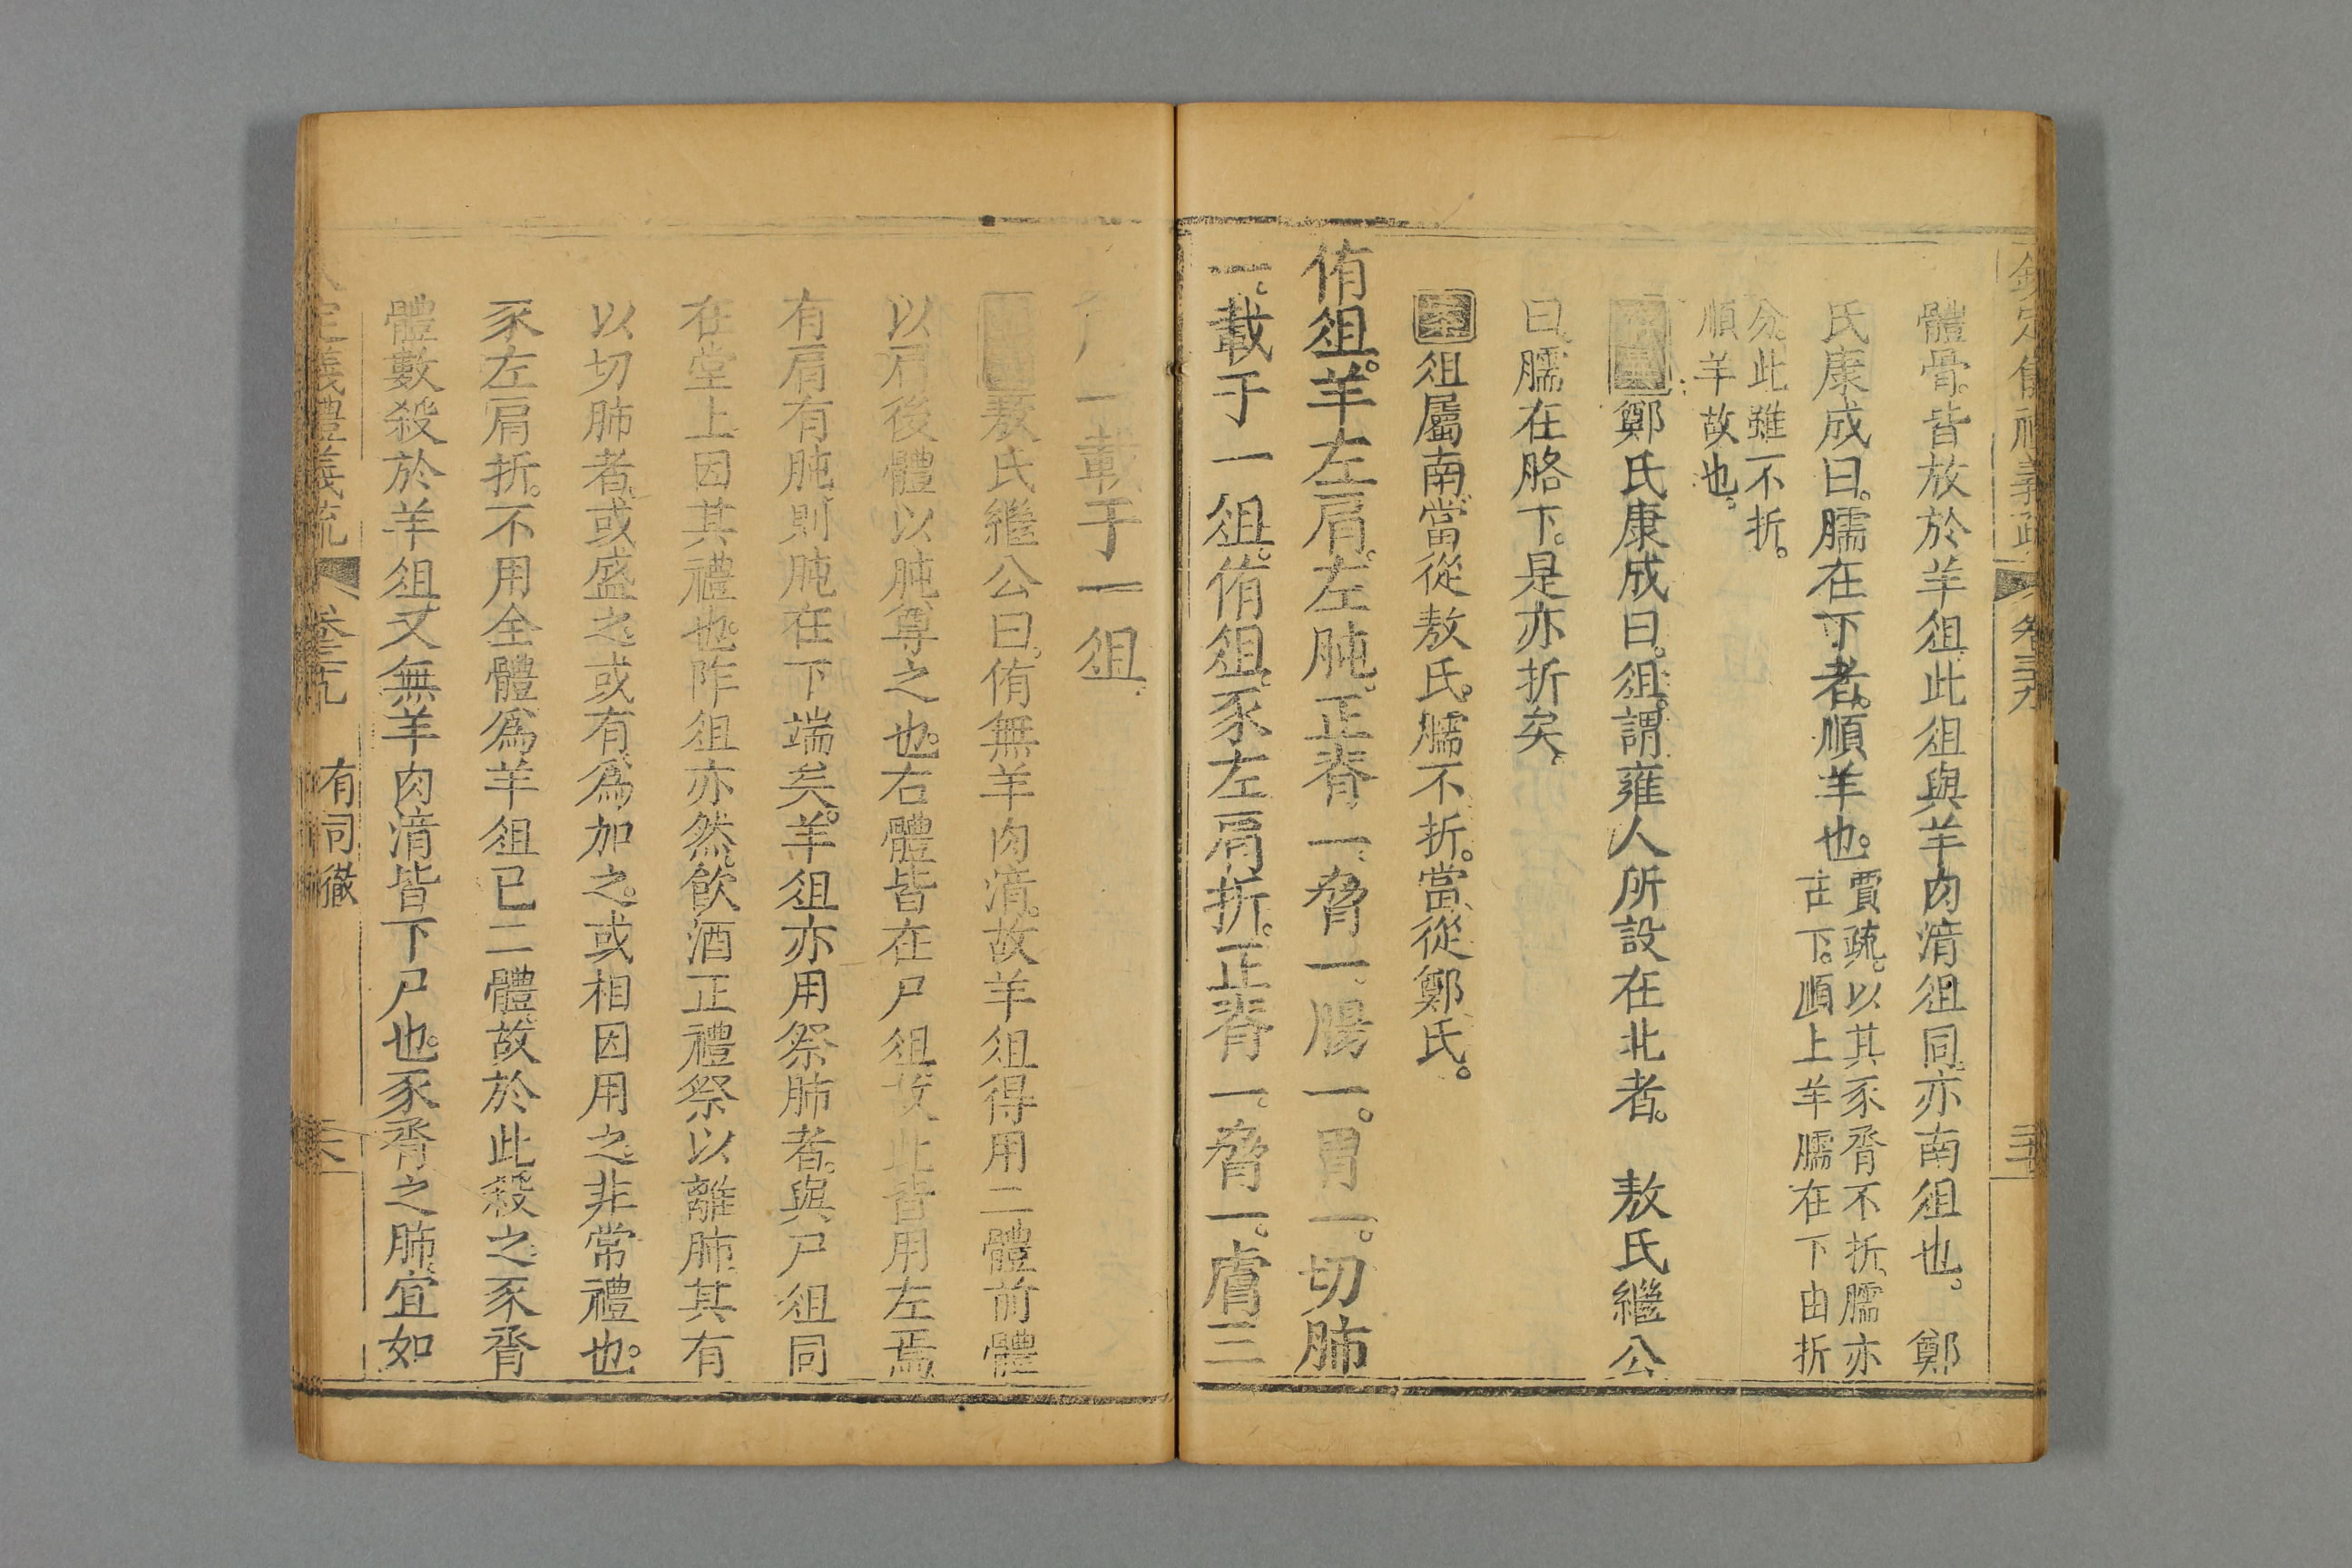 體骨皆放於羊俎此俎與羊肉湆俎同亦南俎也。鄭
氏康成曰。臑在下者。順羊也。賈疏。以其豕脀不折、臑亦
在下。順上羊臑在下由折
分。此雖不折。
順羊故也。
鄭氏康成曰。俎。謂雍人所設在北者。 敖氏繼公
曰。臑在胳下。是亦折矣、
案俎屬南當從敖氏。臑不折。當從鄭氏。
侑俎。羊左肩。左肫。正脊一。脅一。腸一。胃一。切肺
一。載于一俎。侑俎。豕左肩折。正脊一。脅一。膚三。
一載于一俎。
敖氏繼公曰。侑無羊肉湆。故羊俎得用二體前體
以肩後體以肫尊之也。右體皆在尸俎故此皆用左焉
有肩有肫則肫在下端矣。羊俎亦用祭肺者。與尸俎同
在堂上因其禮也。阼俎亦然飲酒正禮祭以離肺其有
以切肺者。或盛之。或有爲加之。或相因用之。非常禮也。
豕左肩折。不用全體爲羊俎已二體故於此殺之。豕脀
體數殺於羊俎又無羊肉湆皆下尸也。豕脀之肺宜如
有司徹